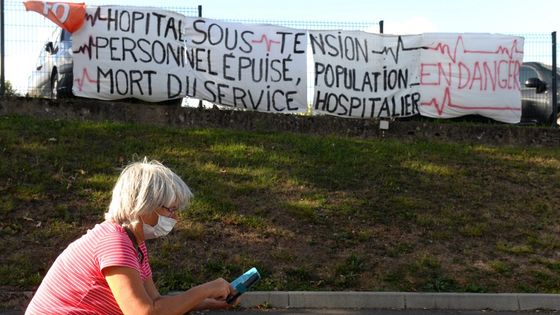 FO
HOPITAL SOUS TENSION
PERSONNEL ÉPUISÉ, POPULATION EN DANGER
MORT DU SERVICE HOSPITALIER